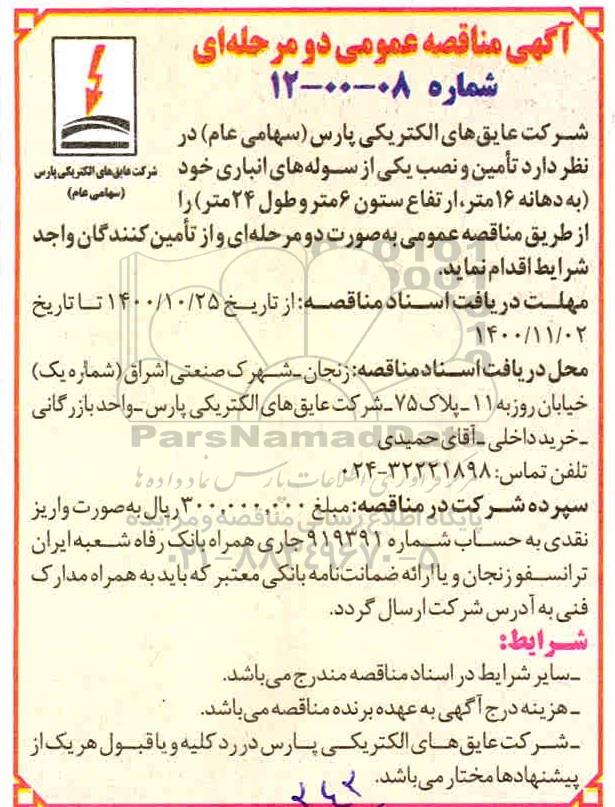 آگهی مناقصه عمومی دو مرحله‌ای
شماره ۰۸-۰۰-۱۲
شرکت عایق‌های الکتریکی پارس
(سهامی عام)
شرکت عایق‌های الکتریکی پارس (سهامی عام) در
نظر دارد تأمین و نصب یکی از سوله‌های انباری خود
(به دهانه ۱۶ متر، ارتفاع ستون ۶ متر و طول ۲۴ متر) را
از طریق مناقصه عمومی به صورت دو مرحله‌ای و از تأمین کنندگان واجد
شرایط اقدام نماید.
مهلت دریافت اسناد مناقصه: از تاریخ ۱۴۰۰/۱۰/۲۵ تا تاریخ
۱۴۰۰/۱۱/۰۲
محل دریافت اسناد مناقصه: زنجان ـ شهرک صنعتی اشراق (شماره یک)
خیابان روزبه ۱۱ ـ پلاک ۷۵ ـ شرکت عایق‌های الکتریکی پارس ـ واحد بازرگانی
ـ خرید داخلی ـ آقای حمیدی
ParsNamadData
تلفن تماس: ۳۲۲۲۱۸۹۸-۰۲۴
مرکز فرآوری اطلاعات پارس نماد داده‌ها
سپرده شرکت در مناقصه: مبلغ ۳۰۰,۰۰۰,۰۰۰ ریال به صورت واریز
پایگاه اطلاع رسانی مناقصه و مزایده
نقدی به حساب شماره ۹۱۹۳۹۱ جاری همراه بانک رفاه شعبه ایران
۰۲۱-۸۸۳۴۹۶۷۰-۵
ترانسفو زنجان و یا ارائه ضمانت‌نامه بانکی معتبر که باید به همراه مدارک
فنی به آدرس شرکت ارسال گردد.
شرایط:
ـ سایر شرایط در اسناد مناقصه مندرج می‌باشد.
ـ هزینه درج آگهی به عهده برنده مناقصه می‌باشد.
ـ شرکت عایق‌های الکتریکی پارس در رد کلیه و یا قبول هر یک از
پیشنهادها مختار می‌باشد.